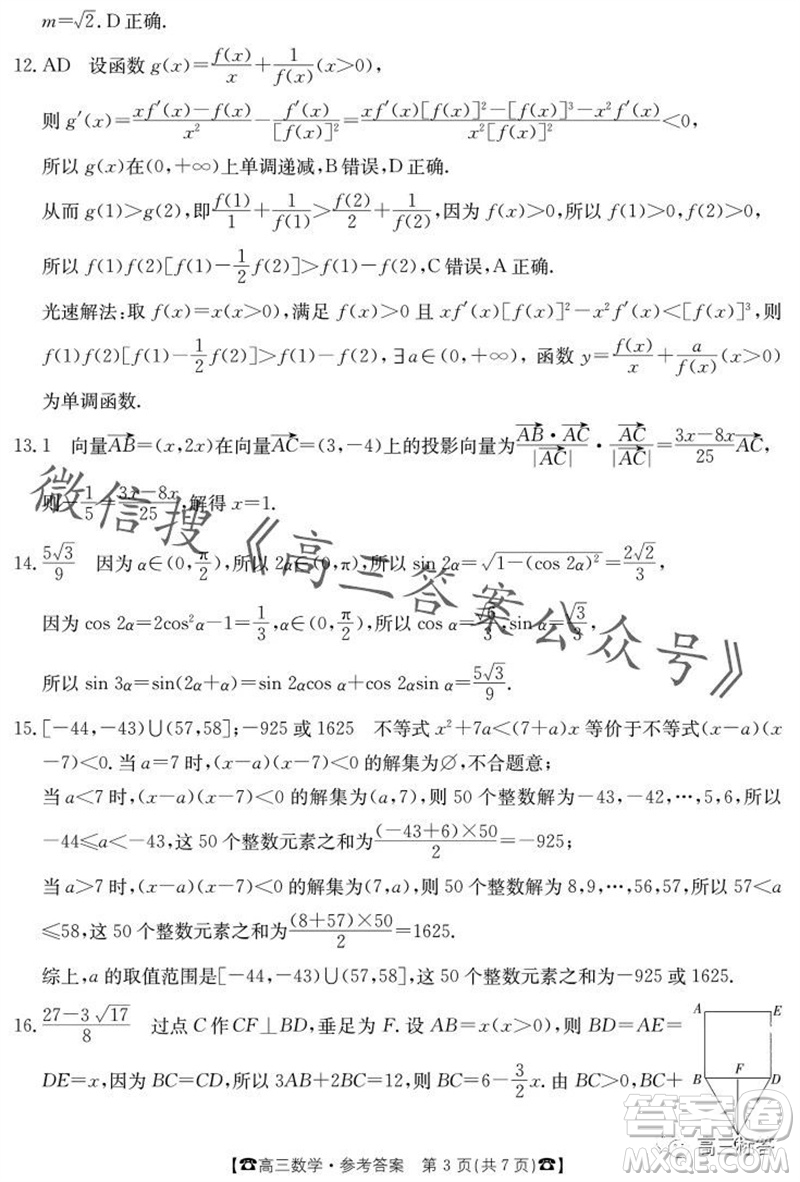 m=√2. D正确.
12. AD 设函数 g(x)=f(x)/x+1/f(x)(x>0),
则 g′(x)=(xf′(x)-f(x))/x²-f′(x)/[f(x)]²=(xf′(x)[f(x)]²-[f(x)]³-x²f′(x))/(x²[f(x)]²)<0,
所以 g(x)在(0,+∞)上单调递减,B错误,D正确.
从而 g(1)>g(2),即f(1)/1+1/f(1)>f(2)/2+1/f(2),因为 f(x)>0,所以 f(1)f(2)>0,
所以 f(1)f(2)[f(1)-1/2f(2)]>f(1)-f(2),C错误,A正确.
光速解法:取 f(x)=x(x>0),满足 f(x)>0 且 xf′(x)[f(x)]²-x²f′(x)<[f(x)]³,则
f(1)f(2)[f(1)-1/2f(2)]>f(1)-f(2),∃a∈(0,+∞),函数 y=f(x)/x+a/f(x)(x>0)
为单调函数.
13. 1 向量AB=(x,2x)在向量AC=(3,-4)上的投影向量为(AB·AC)/|AC|·AC/|AC|=(3x-8x)/25 AC,
则-1/5=(3x-8x)/25,解得 x=1.
14. 5√3/9 因为 α∈(0,π/2),所以 2α∈(0,π),所以 sin 2α=√(1-(cos 2α)²)=2√2/3,
因为 cos 2α=2cos²α-1=1/3,α∈(0,π/2),所以 cos α=√6/3,sin α=√3/3,
所以 sin 3α=sin(2α+α)=sin 2αcos α+cos 2αsin α=5√3/9.
15. [-44,-43)∪(57,58];-925或1625 不等式 x²+7a<(7+a)x 等价于不等式(x-a)(x
-7)<0. 当 a=7 时,(x-a)(x-7)<0 的解集为∅,不合题意;
当 a<7 时,(x-a)(x-7)<0 的解集为(a,7),则 50 个整数解为-43,-42,…,5,6,所以
-44≤a<-43,这 50 个整数元素之和为(-43+6)×50/2=-925;
当 a>7 时,(x-a)(x-7)<0 的解集为(7,a),则 50 个整数解为 8,9,…,56,57,所以 57<a
≤58,这 50 个整数元素之和为(8+57)×50/2=1625.
综上,a 的取值范围是[-44,-43)∪(57,58],这 50 个整数元素之和为-925 或 1625.
16. (27-3√17)/8 过点 C 作 CF⊥BD,垂足为 F. 设 AB=x(x>0),则 BD=AE=
DE=x,因为 BC=CD,所以 3AB+2BC=12,则 BC=6-3/2x. 由 BC>0,BC+
A E
F
B D
微信搜《高三答案公众号》
答案圈
高三标答
【☎高三数学·参考答案 第 3 页(共 7 页)☎】